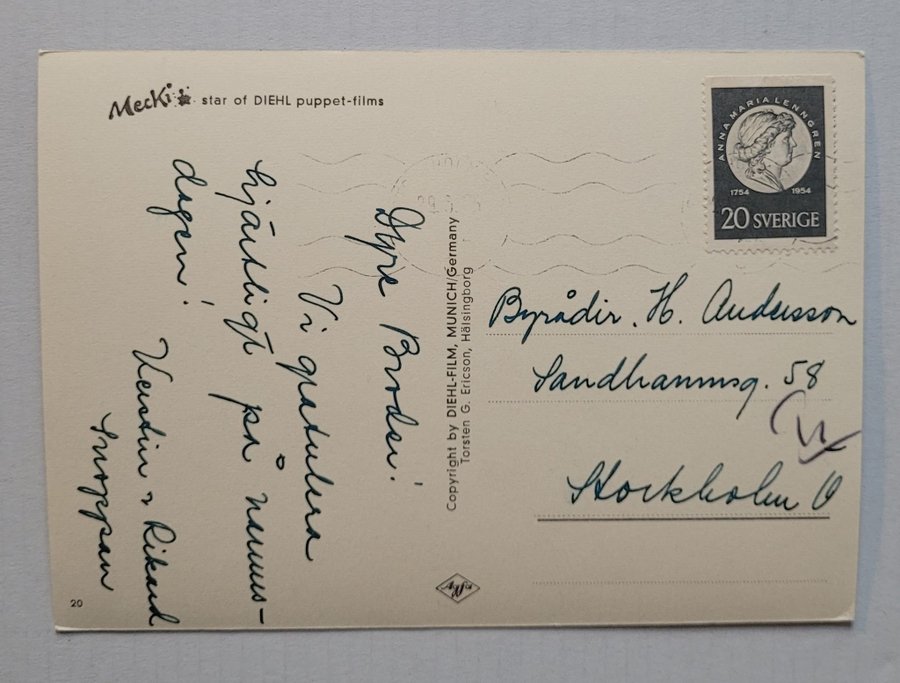 Mecki star of DIEHL puppet-films
Dyre Broder!
Vi gratulera
hjärtligt på namns-
dagen!
Kerstin & Rikard
Snoppan
20
Copyright by DIEHL-FILM, MUNICH/Germany
Torsten G. Ericson, Hälsingborg
Agfa
ANNA MARIA LENNGREN
1754 1954
20 SVERIGE
Byrådir. H. Andersson
Sandhamnsg. 58
Stockholm Ö